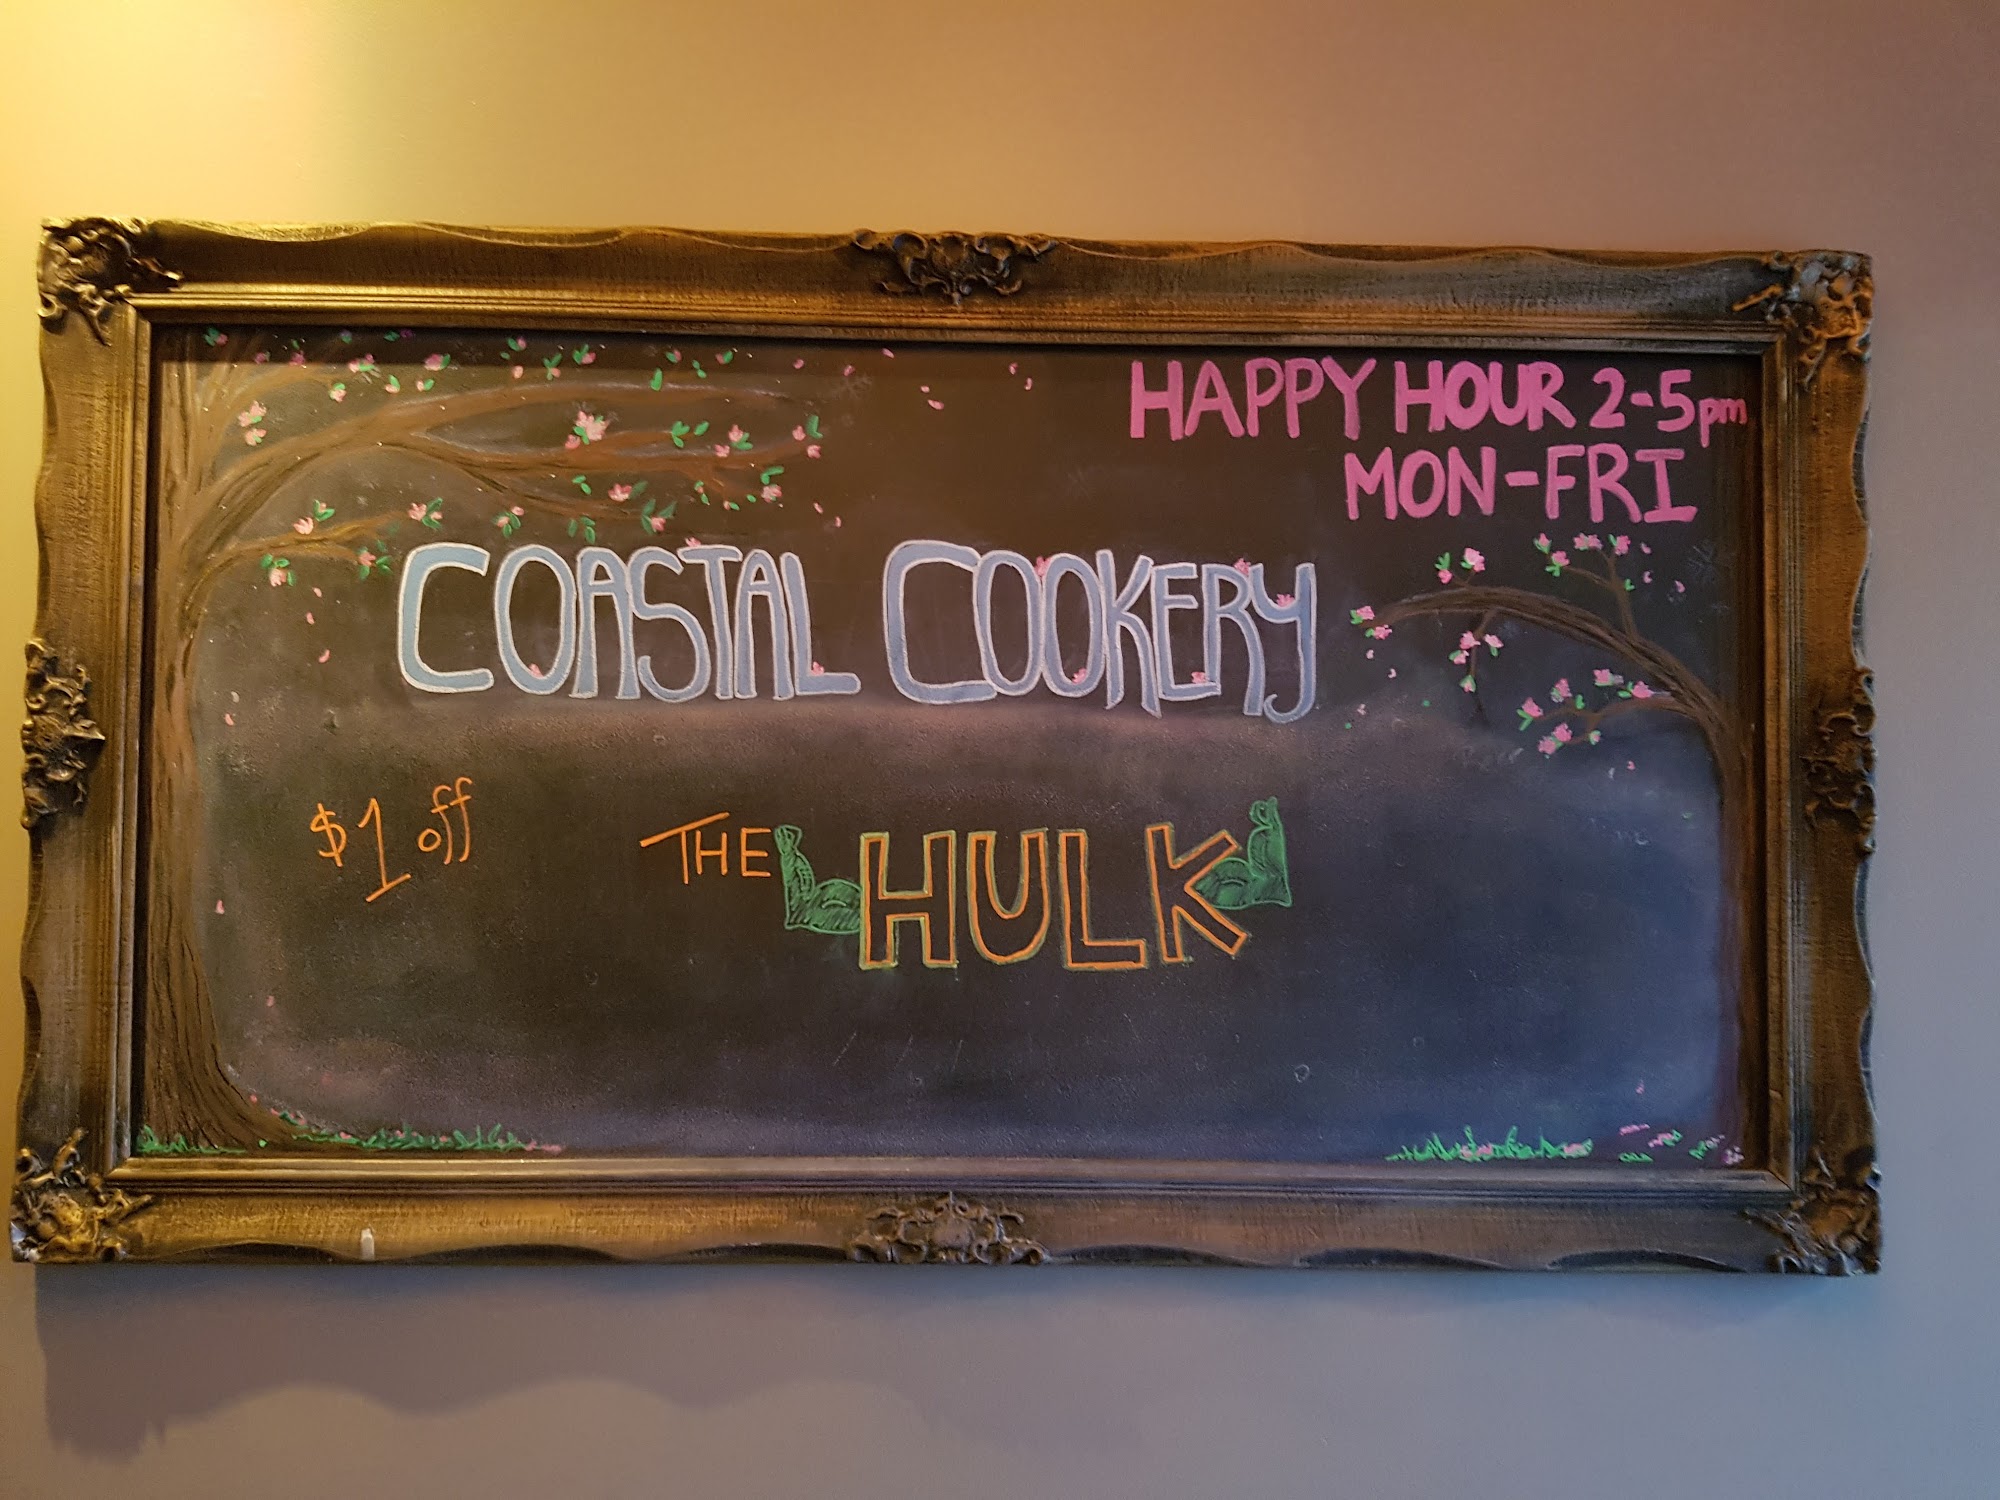 HAPPY HOUR 2-5pm
MON-FRI
COASTAL COOKERY
$1 off
THE HULK